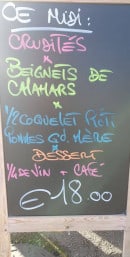 CE MIDI:
CRUDITÉS
*
BEIGNETS DE
CALAMARS
*
1/2 COQUELET RÔTI
POMMES Gd MÈRE
*
DESSERT
1/4 DE VIN + CAFÉ
€18.00